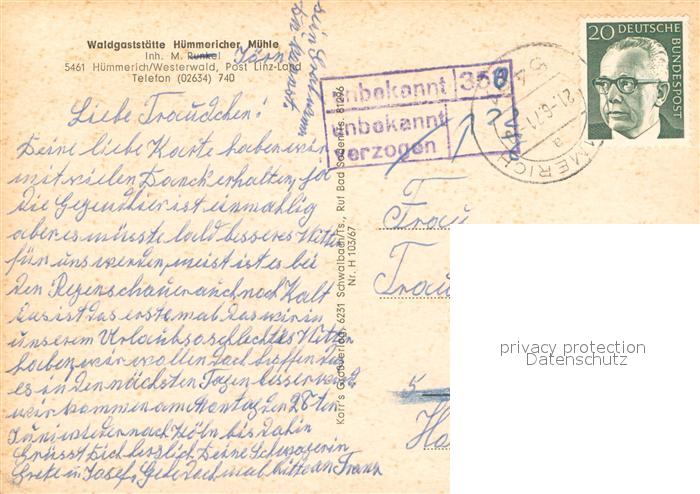 Waldgaststätte Hümmericher Mühle
Inh. M. Runkel
5461 Hümmerich/Westerwald, Post Linz-Land
Telefon (02634) 740
Liebe Traudchen!
Deine liebe Karte haben wir
mit vielen Danck erhalten, ja
die Gegend hier ist einmahlig
aber es müsste bald besseres Wetter
für uns werden, meist ist es bei
den Regenschauer auch noch Kalt
das ist das erste mal das wir in
unserem Urlaub so schlechtes Wetter
haben, wir wollen doch hoffen das
es in den nächsten Tagen besser wird
wir kommen am Montag den 28ten
Juni wieder nach Köln bis dahin
Grüsst Dich herzlich Deine Schwägerin
Grete u Josef, Gebe doch mal bitte an Franz
Korr's Großverlag, 6231 Schwalbach/Ts., Ruf Bad Soden/Ts. 81296
Nr. H 103/67
unbekannt
unbekannt
verzogen
20 DEUTSCHE
BUNDESPOST
21.-6.71
a
Frau
privacy protection
Datenschutz
5